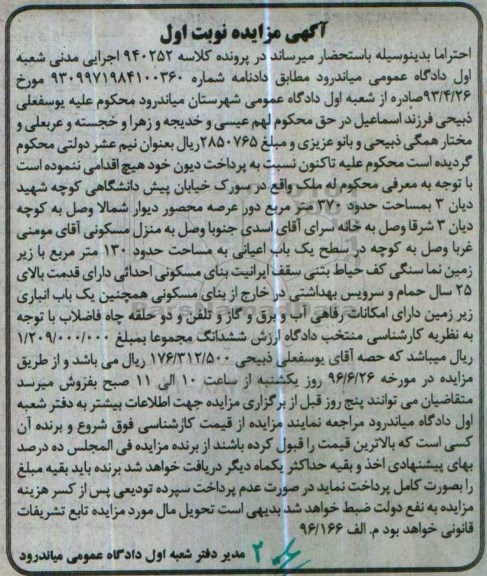 آگهی مزایده نوبت اول
احتراما بدینوسیله باستحضار میرساند در پرونده کلاسه ۹۴۰۲۵۲ اجرایی مدنی شعبه
اول دادگاه عمومی میاندرود مطابق دادنامه شماره ۹۳۰۹۹۷۱۹۸۴۱۰۰۳۶۰ مورخ
۹۳/۴/۲۶صادره از شعبه اول دادگاه عمومی شهرستان میاندرود محکوم علیه یوسفعلی
ذبیحی فرزند اسماعیل در حق محکوم لهم عیسی و خدیجه و زهرا و خجسته و عربعلی و
مختار همگی ذبیحی و بانو عزیزی و مبلغ ۲۸۵۰۷۶۵ریال بعنوان نیم عشر دولتی محکوم
گردیده است محکوم علیه تاکنون نسبت به پرداخت دیون خود هیچ اقدامی ننموده است
با توجه به معرفی محکوم له ملک واقع در سورک خیابان پیش دانشگاهی کوچه شهید
دیان ۳ بمساحت حدود ۳۷۰ متر مربع دور عرصه محصور دیوار شمالا وصل به کوچه
دیان ۳ شرقا وصل به خانه سرای آقای اسدی جنوبا وصل به منزل مسکونی آقای مومنی
غربا وصل به کوچه در سطح یک باب اعیانی به مساحت حدود ۱۳۰ متر مربع با زیر
زمین نما سنگی کف حیاط بتنی سقف ایرانیت بنای مسکونی احداثی دارای قدمت بالای
۲۵ سال حمام و سرویس بهداشتی در خارج از بنای مسکونی همچنین یک باب انباری
زیر زمین دارای امکانات رفاهی آب و برق و گاز و تلفن و دو حلقه چاه فاضلاب با توجه
به نظریه کارشناسی منتخب دادگاه ارزش ششدانگ مجموعا بمبلغ ۱/۲۰۹/۰۰۰/۰۰۰
ریال میباشد که حصه آقای یوسفعلی ذبیحی ۱۷۶/۳۱۲/۵۰۰ ریال می باشد و از طریق
مزایده در مورخه ۹۶/۶/۲۶ روز یکشنبه از ساعت ۱۰ الی ۱۱ صبح بفروش میرسد
متقاضیان می توانند پنج روز قبل از برگزاری مزایده جهت اطلاعات بیشتر به دفتر شعبه
اول دادگاه میاندرود مراجعه نمایند مزایده از قیمت کارشناسی فوق شروع و برنده آن
کسی است که بالاترین قیمت را قبول کرده باشند از برنده مزایده فی المجلس ده درصد
بهای پیشنهادی اخذ و بقیه حداکثر یکماه دیگر دریافت خواهد شد برنده باید بقیه مبلغ
را بصورت کامل پرداخت نماید در صورت عدم پرداخت سپرده تودیعی پس از کسر هزینه
مزایده به نفع دولت ضبط خواهد شد بدیهی است تحویل مال مورد مزایده تابع تشریفات
قانونی خواهد بود م. الف ۹۶/۱۶۶
مدیر دفتر شعبه اول دادگاه عمومی میاندرود